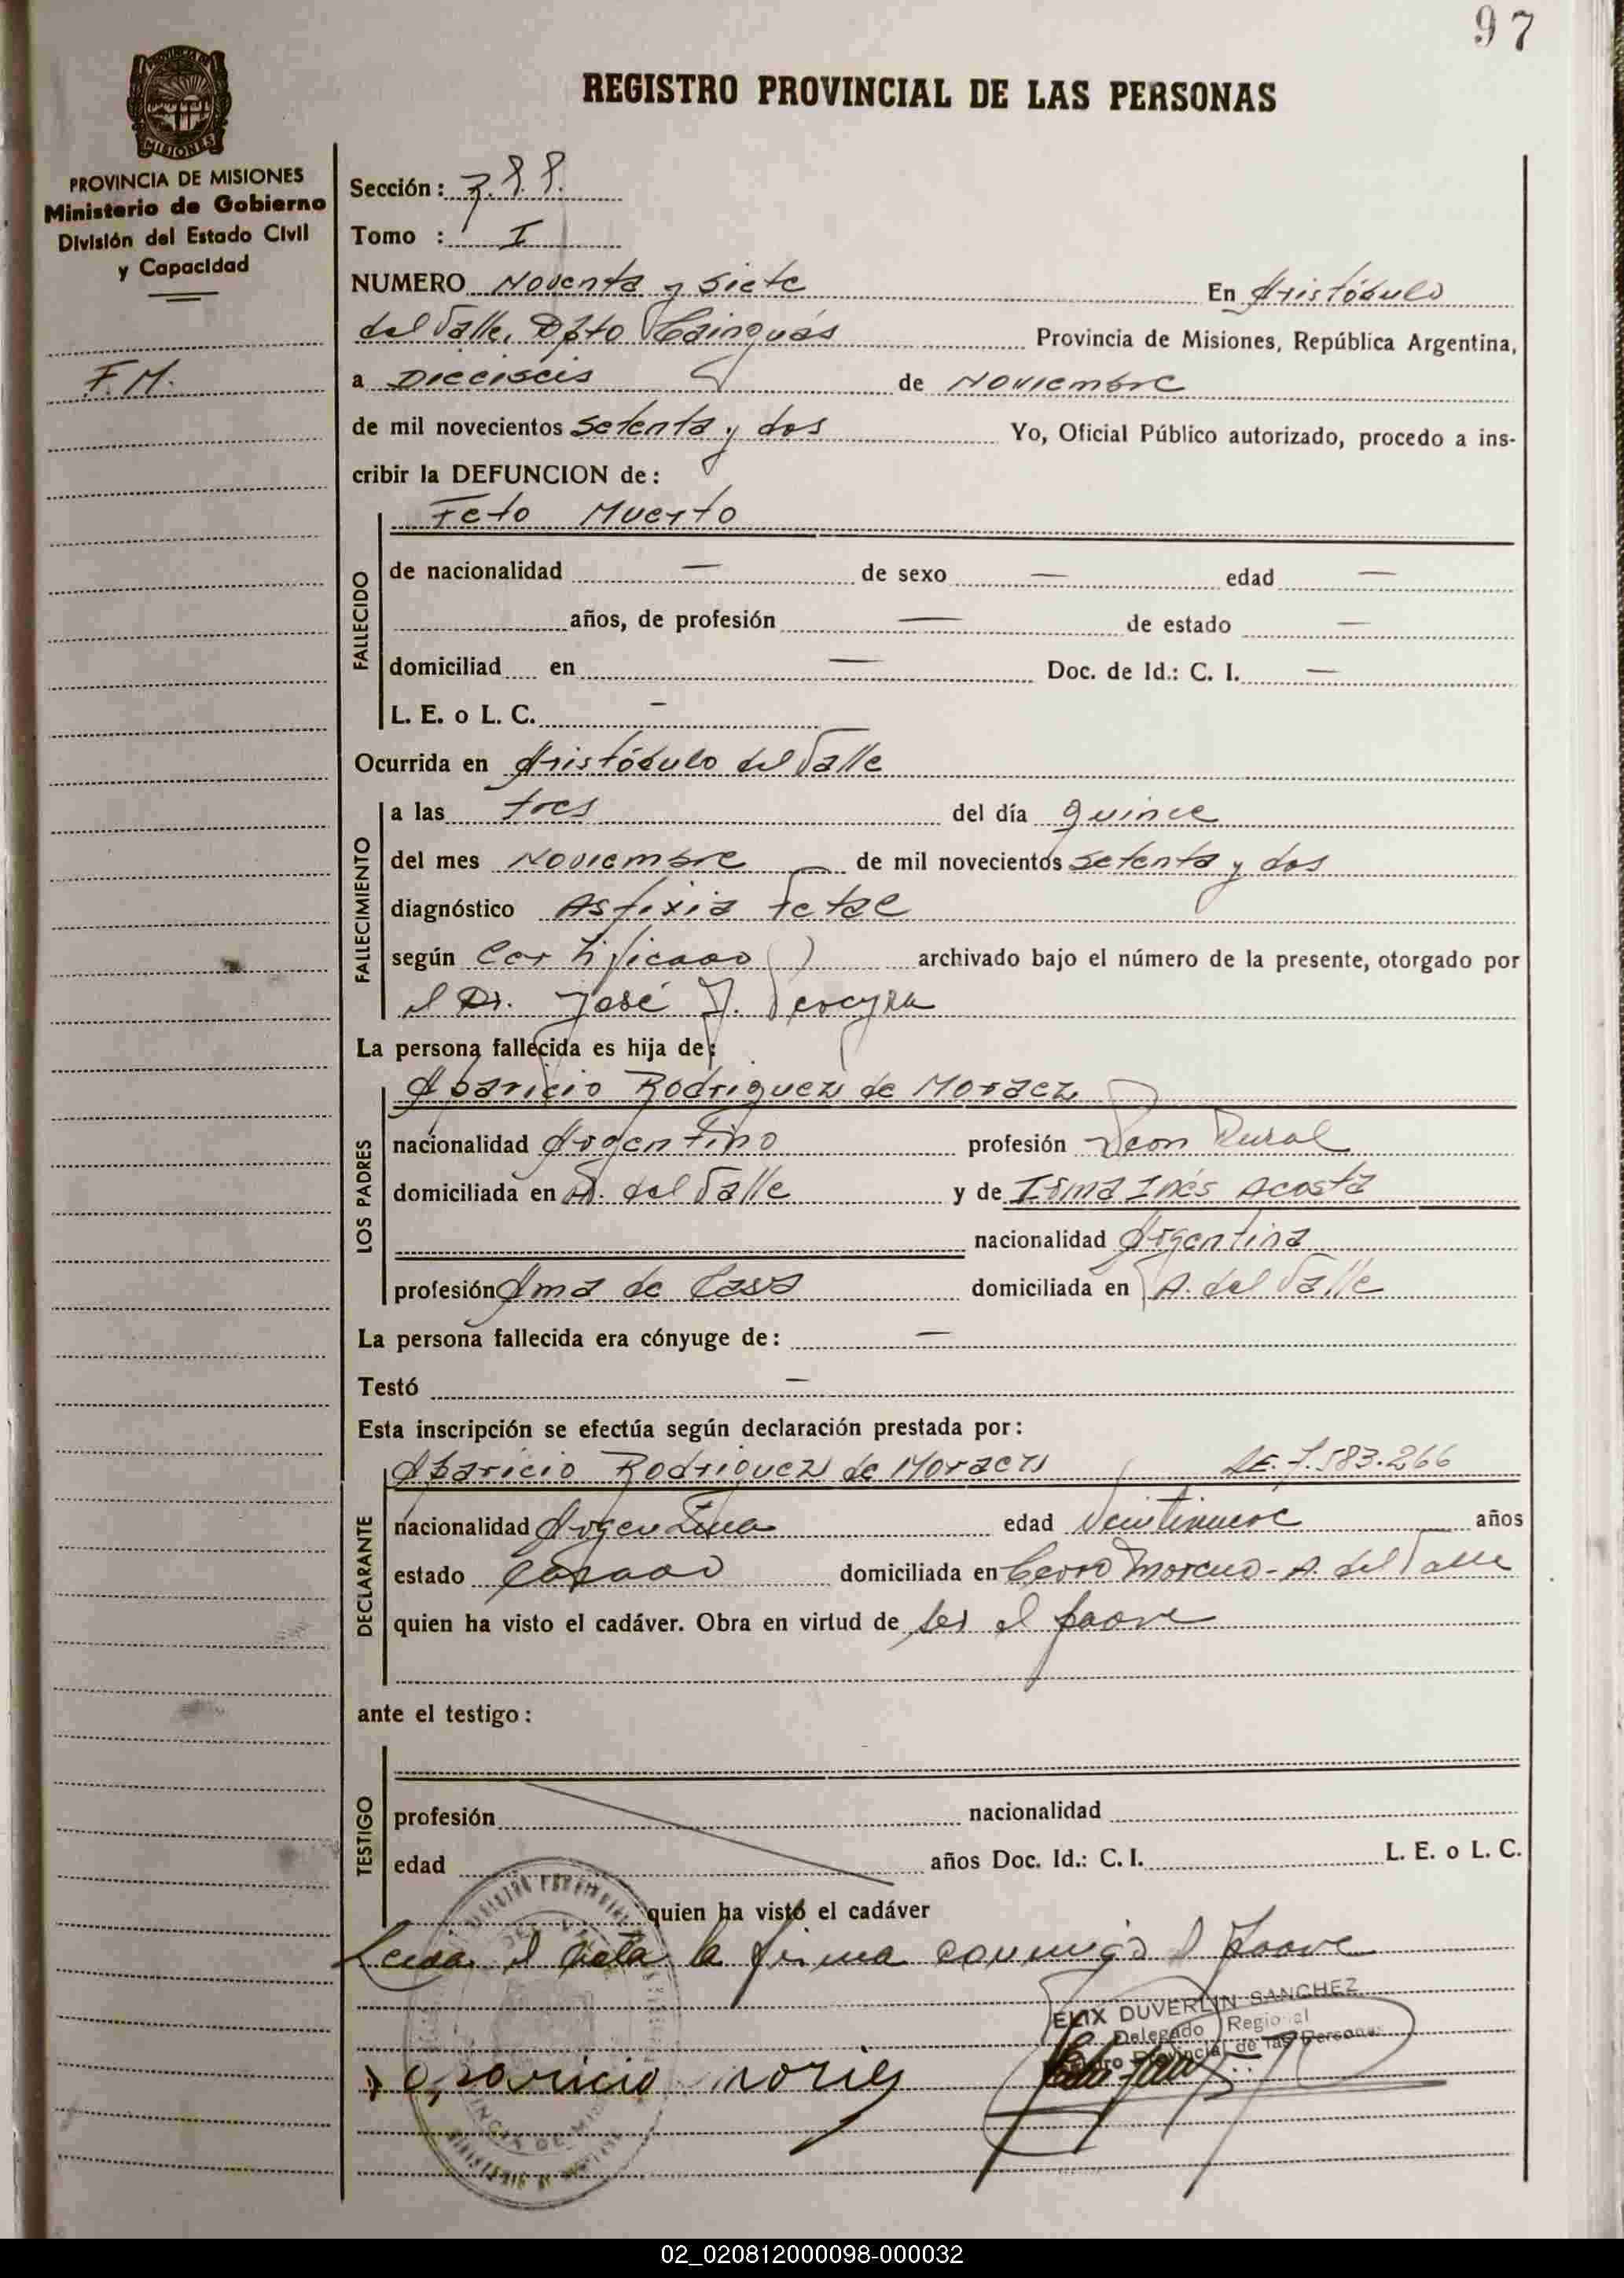 97
REGISTRO PROVINCIAL DE LAS PERSONAS
PROVINCIA DE
MISIONES
PROVINCIA DE MISIONES
Ministerio de Gobierno
División del Estado Civil
y Capacidad
F.M.
Sección:
Tomo : I
NUMERO Noventa y siete En Aristóbulo
del Valle, Dpto Cainguás Provincia de Misiones, República Argentina,
a Dieciseis de Noviembre
de mil novecientos setenta y dos Yo, Oficial Público autorizado, procedo a ins-
cribir la DEFUNCION de:
Feto Muerto
FALLECIDO
de nacionalidad — de sexo — edad —
años, de profesión — de estado —
domiciliad en — Doc. de Id.: C. I. —
L. E. o L. C. -
Ocurrida en Aristóbulo del Valle
FALLECIMIENTO
a las tres del día quince
del mes Noviembre de mil novecientos setenta y dos
diagnóstico Asfixia Fetal
según Certificado archivado bajo el número de la presente, otorgado por
el Dr. José J. Pereyra
La persona fallecida es hija de:
LOS PADRES
Aparicio Rodriguez de Moraez
nacionalidad Argentino profesión Peon Rural
domiciliada en A. del Valle y de Irma Inés Acosta
nacionalidad Argentina
profesión Ama de Casa domiciliada en A. del Valle
La persona fallecida era cónyuge de: —
Testó —
Esta inscripción se efectúa según declaración prestada por:
DECLARANTE
Aparicio Rodriguez de Moraez LE. 7.583.266
nacionalidad Argentina edad Veintinueve años
estado Casado domiciliada en Cerro Moreno - A. del Valle
quien ha visto el cadáver. Obra en virtud de ser el padre
ante el testigo:
TESTIGO
profesión nacionalidad
edad años Doc. Id.: C. I. L. E. o L. C.
quien ha visto el cadáver
Leida el acta la firma conmigo el padre
ELIX DUVERLIN SANCHEZ
Delegado Regional
Provincial de las Personas
aparicio
02_020812000098-000032